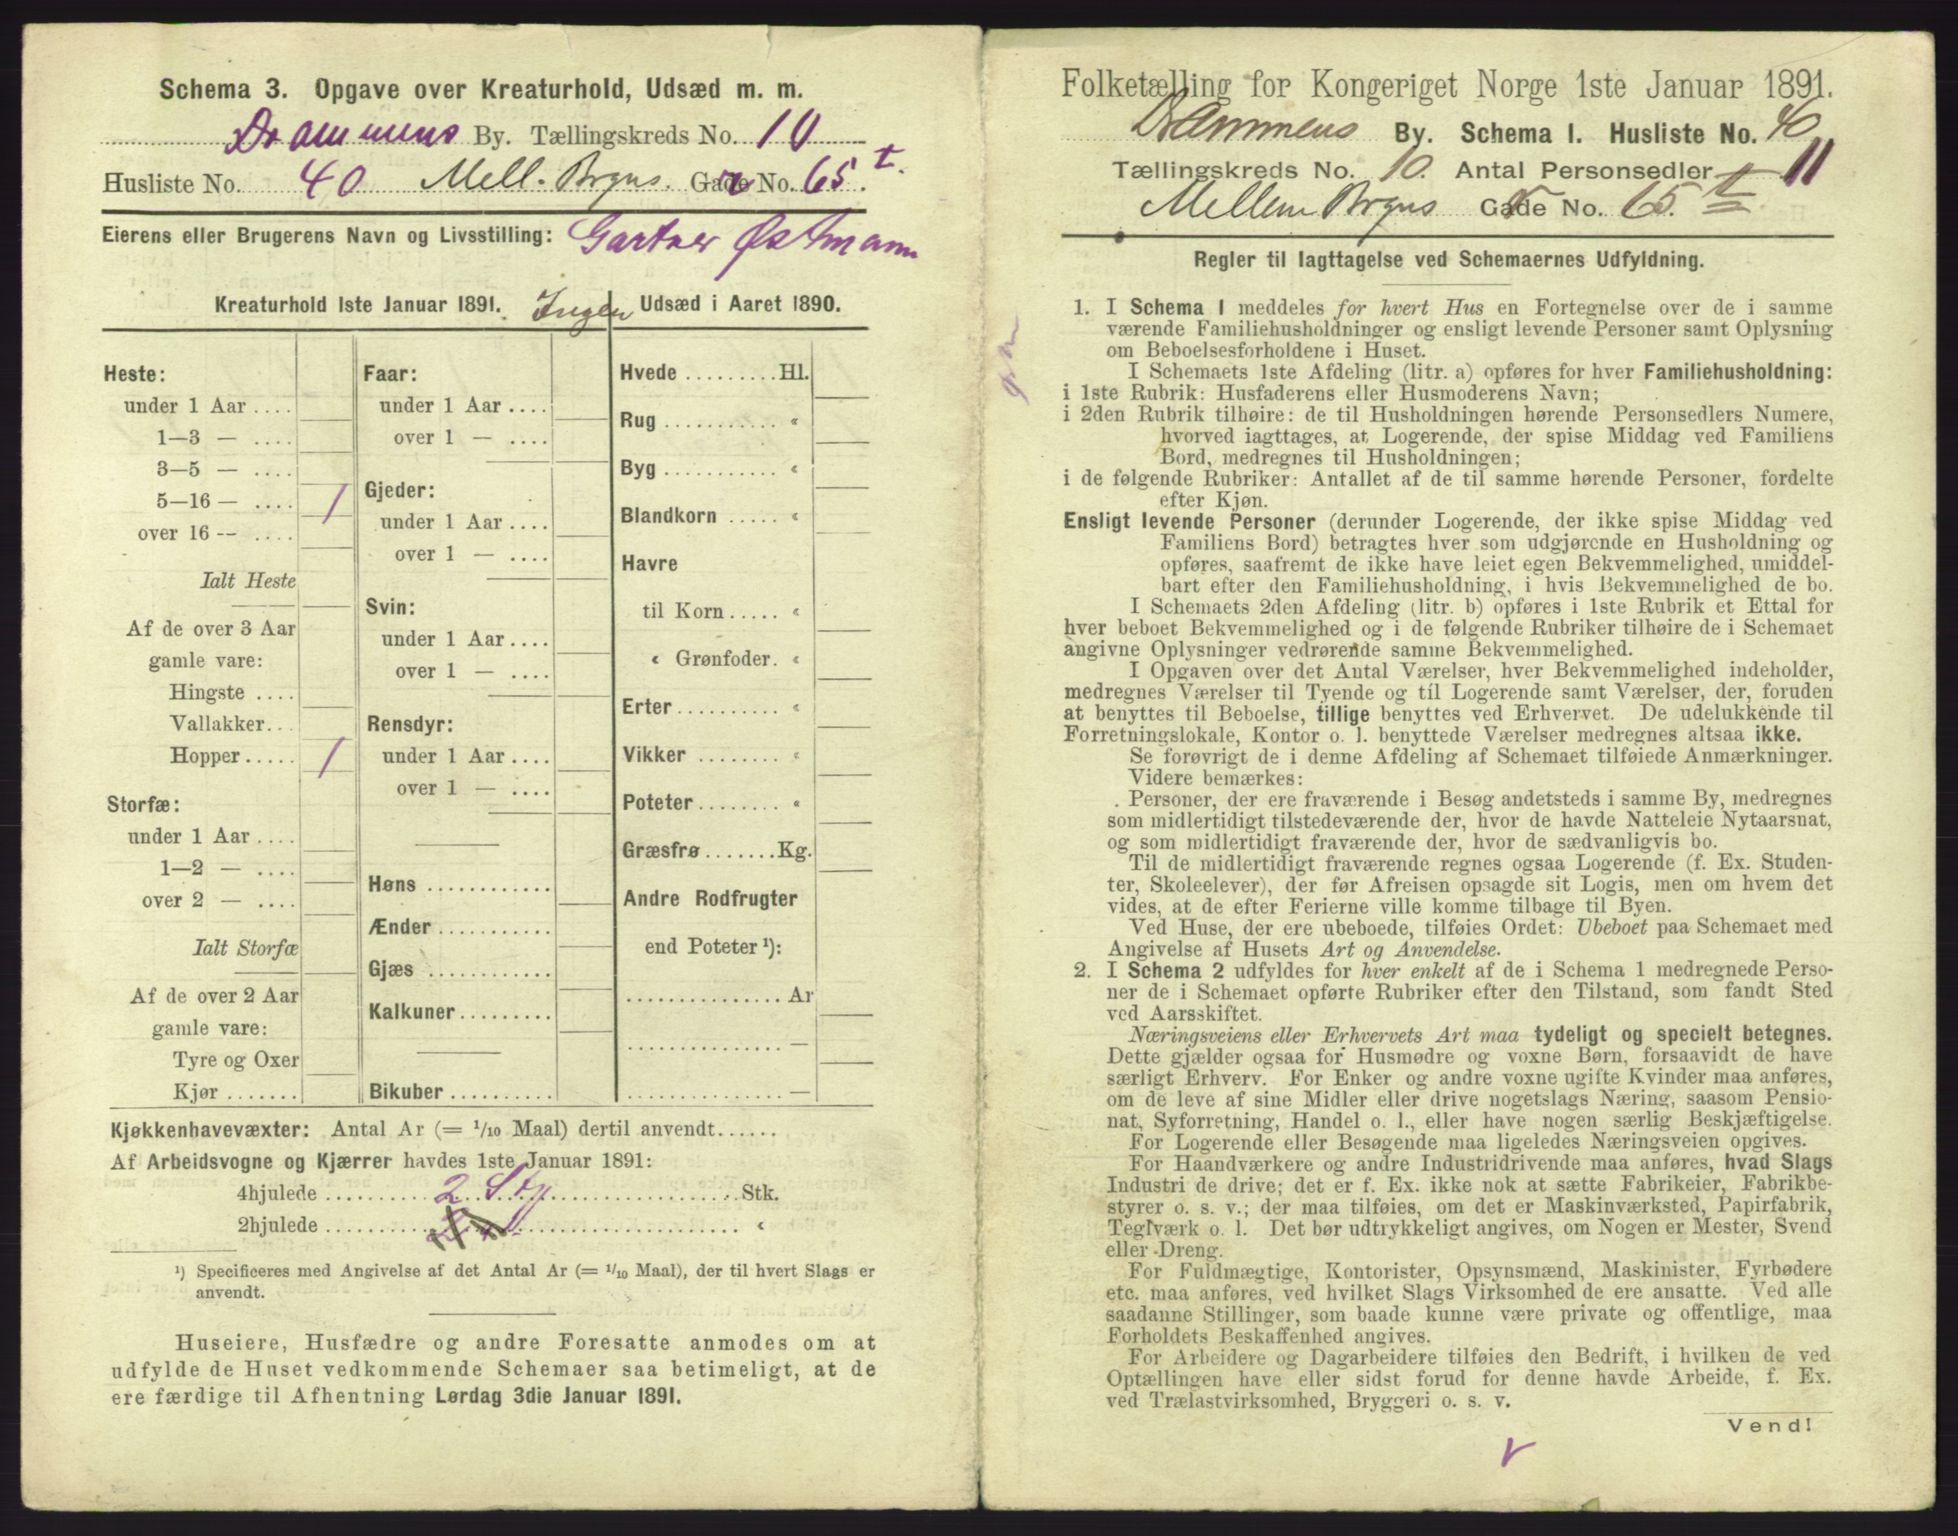 Schema 3. Opgave over Kreaturhold, Udsæd m. m.
Drammens By. Tællingskreds No. 10
Husliste No. 40 Mell. Brgns. Gade No. 65 t.
Eierens eller Brugerens Navn og Livsstilling: Gartner Østmann
Kreaturhold 1ste Januar 1891. Ingen Udsæd i Aaret 1890.
Heste:
under 1 Aar ....
1—3 — ....
3—5 — ....
5—16 — .... 1
over 16 — ....
Ialt Heste
Af de over 3 Aar
gamle vare:
Hingste ....
Vallakker...
Hopper..... 1
Storfæ:
under 1 Aar ....
1—2 — ....
over 2 — ....
Ialt Storfæ
Af de over 2 Aar
gamle vare:
Tyre og Oxer
Kjør .......
Faar:
under 1 Aar ....
over 1 — ....
Gjeder:
under 1 Aar ....
over 1 — ....
Svin:
under 1 Aar ....
over 1 — ....
Rensdyr:
under 1 Aar ....
over 1 — ....
Høns ............
Ænder ...........
Gjæs ............
Kalkuner.........
Bikuber ..........
Hvede .........Hl.
Rug ........... «
Byg ........... «
Blandkorn ..... «
Havre
til Korn ..... «
« Grønfoder. «
Erter.......... «
Vikker ........ «
Poteter........ «
Græsfrø.......Kg.
Andre Rodfrugter
end Poteter ¹):
............... Ar
............... —
............... —
Kjøkkenhavevæxter: Antal Ar (= 1/10 Maal) dertil anvendt......
Af Arbeidsvogne og Kjærrer havdes 1ste Januar 1891:
4hjulede .......... 2 Sty .......... Stk.
2hjulede .......... «
¹) Specificeres med Angivelse af det Antal Ar (= 1/10 Maal), der til hvert Slags er
anvendt.
Huseiere, Husfædre og andre Foresatte anmodes om at
udfylde de Huset vedkommende Schemaer saa betimeligt, at de
ere færdige til Afhentning Lørdag 3die Januar 1891.
Folketælling for Kongeriget Norge 1ste Januar 1891.
Drammens By. Schema I. Husliste No. 40
Tællingskreds No. 10. Antal Personsedler 11
Mellem Brgns Gade No. 65. t
Regler til Iagttagelse ved Schemaernes Udfyldning.
1. I Schema I meddeles for hvert Hus en Fortegnelse over de i samme
værende Familiehusholdninger og ensligt levende Personer samt Oplysning
om Beboelsesforholdene i Huset.
I Schemaets 1ste Afdeling (litr. a) opføres for hver Familiehusholdning:
i 1ste Rubrik: Husfaderens eller Husmoderens Navn;
i 2den Rubrik tilhøire: de til Husholdningen hørende Personsedlers Numere,
hvorved iagttages, at Logerende, der spise Middag ved Familiens
Bord, medregnes til Husholdningen;
i de følgende Rubriker: Antallet af de til samme hørende Personer, fordelte
efter Kjøn.
Ensligt levende Personer (derunder Logerende, der ikke spise Middag ved
Familiens Bord) betragtes hver som udgjørende en Husholdning og
opføres, saafremt de ikke have leiet egen Bekvemmelighed, umiddel-
bart efter den Familiehusholdning, i hvis Bekvemmelighed de bo.
I Schemaets 2den Afdeling (litr. b) opføres i 1ste Rubrik et Ettal for
hver beboet Bekvemmelighed og i de følgende Rubriker tilhøire de i Schemaet
angivne Oplysninger vedrørende samme Bekvemmelighed.
I Opgaven over det Antal Værelser, hver Bekvemmelighed indeholder,
medregnes Værelser til Tyende og til Logerende samt Værelser, der, foruden
at benyttes til Beboelse, tillige benyttes ved Erhvervet. De udelukkende til
Forretningslokale, Kontor o. l. benyttede Værelser medregnes altsaa ikke.
Se forøvrigt de i denne Afdeling af Schemaet tilføiede Anmærkninger.
Videre bemærkes:
Personer, der ere fraværende i Besøg andetsteds i samme By, medregnes
som midlertidigt tilstedeværende der, hvor de havde Natteleie Nytaarsnat,
og som midlertidigt fraværende der, hvor de sædvanligvis bo.
Til de midlertidigt fraværende regnes ogsaa Logerende (f. Ex. Studen-
ter, Skoleelever), der før Afreisen opsagde sit Logis, men om hvem det
vides, at de efter Ferierne ville komme tilbage til Byen.
Ved Huse, der ere ubeboede, tilføies Ordet: Ubeboet paa Schemaet med
Angivelse af Husets Art og Anvendelse.
2. I Schema 2 udfyldes for hver enkelt af de i Schema 1 medregnede Perso-
ner de i Schemaet opførte Rubriker efter den Tilstand, som fandt Sted
ved Aarsskiftet.
Næringsveiens eller Erhvervets Art maa tydeligt og specielt betegnes.
Dette gjælder ogsaa for Husmødre og voxne Børn, forsaavidt de have
særligt Erhverv. For Enker og andre voxne ugifte Kvinder maa anføres,
om de leve af sine Midler eller drive nogetslags Næring, saasom Pensio-
nat, Syforretning, Handel o. l., eller have nogen særlig Beskjæftigelse.
For Logerende eller Besøgende maa ligeledes Næringsveien opgives.
For Haandværkere og andre Industridrivende maa anføres, hvad Slags
Industri de drive; det er f. Ex. ikke nok at sætte Fabrikeier, Fabrikbe-
styrer o. s. v.; der maa tilføies, om det er Maskinværksted, Papirfabrik,
Teglværk o. l. Det bør udtrykkeligt angives, om Nogen er Mester, Svend
eller Dreng.
For Fuldmægtige, Kontorister, Opsynsmænd, Maskinister, Fyrbødere
etc. maa anføres, ved hvilket Slags Virksomhed de ere ansatte. Ved alle
saadanne Stillinger, som baade kunne være private og offentlige, maa
Forholdets Beskaffenhed angives.
For Arbeidere og Dagarbeidere tilføies den Bedrift, i hvilken de ved
Optællingen have eller sidst forud for denne havde Arbeide, f. Ex.
ved Trælastvirksomhed, Bryggeri o. s. v.
Vend!